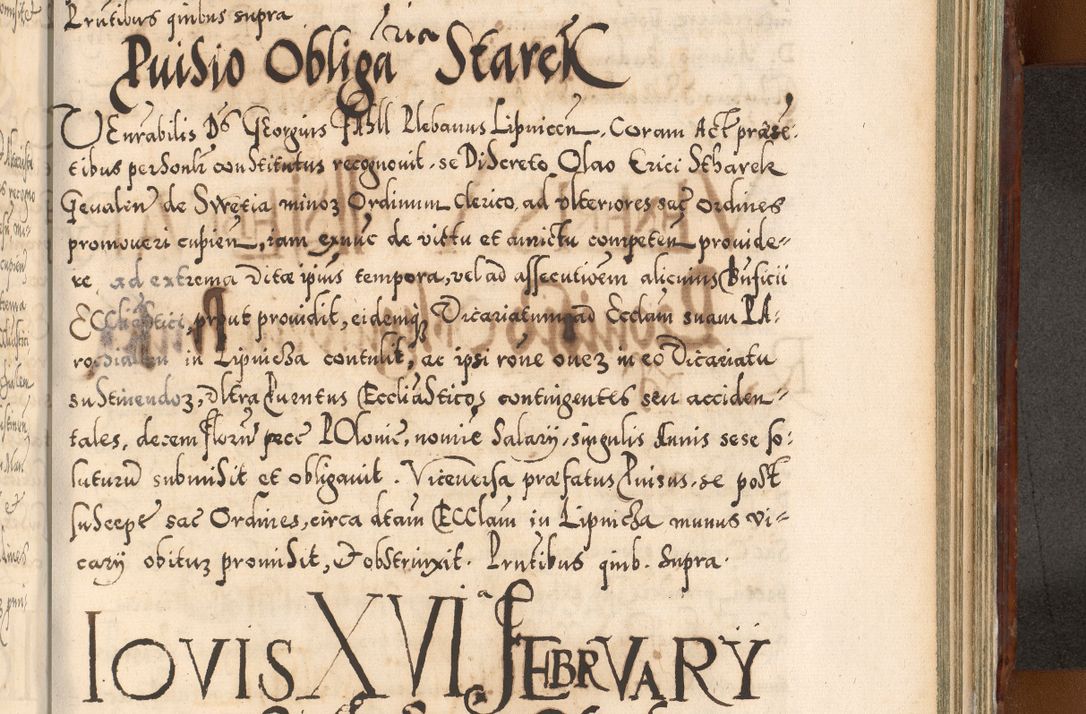 Prntibus quibus supra
Puisio Obliga^ria Starek
VEnrabilis Ds GEorgius Plebanus Lipnicen, Coram Act præsē-
tibus personlr constitutus recognovit, se Discreto Olao Erici Stharek
Gevalen de Swetia minoȝ Ordinum Clerico, ad ulteriores sac ordines
promoveri cupien, iam exnuc de victu et amictu competen provide-
re ad extrema vitæ ipius tempora, vel ad assecutioem alicuius Bnficii
Ecclistici, prout providit, eidemq Vicariatum ad Ecclam suam PA-
rochialem in Lipnicza contulit, ac ipsi rone oneȝ in eo Vicariatu
sustinendoȝ, Ultra Pventus Eccliasticos contingentes seu acciden-
tales, decem florn pecc POlonic, nomie Salarÿ, singulis Annis sese so-
luturū submisit et obligavit. Viceversa præfatus Puisus, se post
suscept sac Ordines, circa dtam ECClam in Lipnicza munus vi-
carÿ obituȝ promisit, & obstrinxit. Prntibus quib. Supra.
IOVIS XVI^a FEBRVARŸ